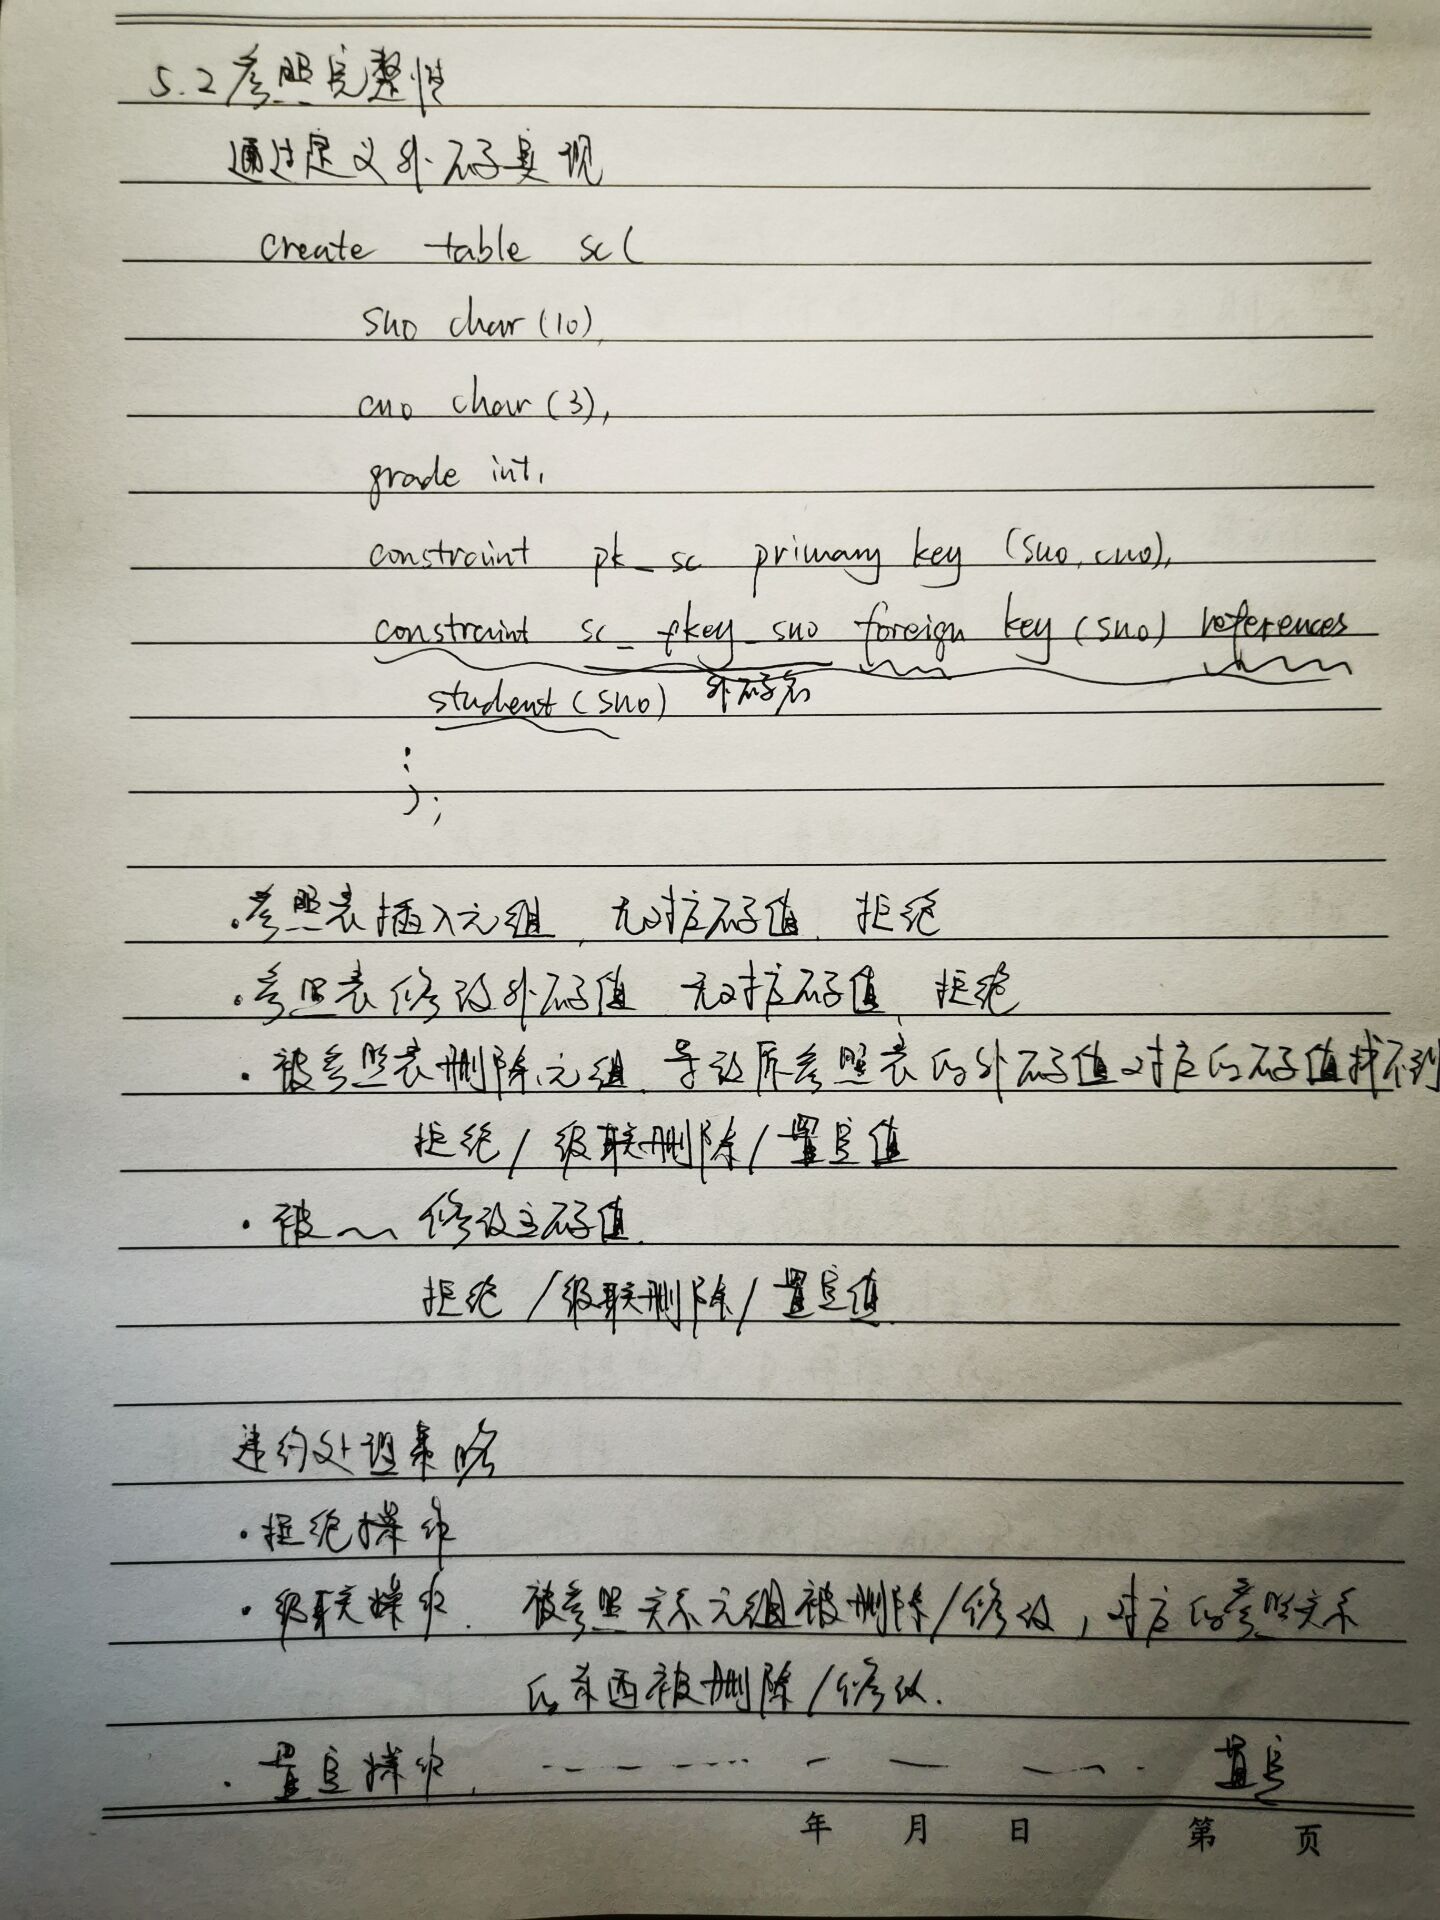 5.2 参照完整性
通过定义外码实现
create table sc(
sno char(10),
cno char(3),
grade int,
constraint pk_sc primary key (sno, cno),
constraint sc_fkey_sno foreign key (sno) references
student(sno) 外码名
:
);
·参照表插入元组,无对应码值,拒绝
·参照表修改外码值 无对应码值,拒绝
·被参照表删除元组,导致原参照表的外码值对应的码值找不到
拒绝/级联删除/置空值
·被~~修改主码值.
拒绝/级联删除/置空值.
违约处理策略
·拒绝操作
·级联操作. 被参照关系元组被删除/修改,对应的参照关系
的东西被删除/修改.
·置空操作, 置空
年 月 日 第 页